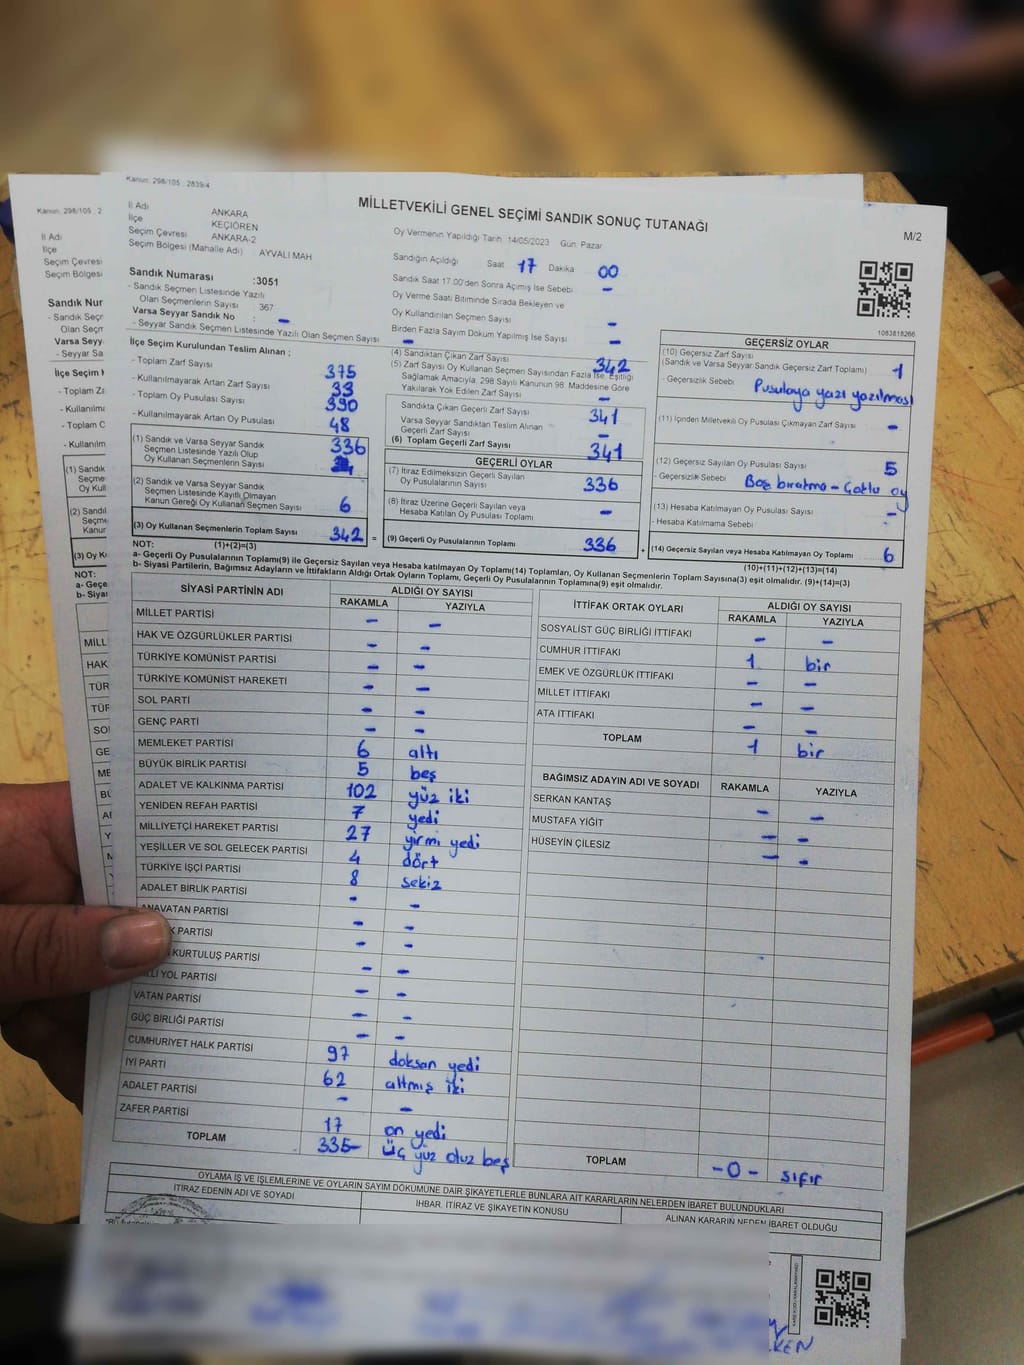 Kanun: 298/105 2839/4
MİLLETVEKİLİ GENEL SEÇİMİ SANDIK SONUÇ TUTANAĞI
M/2
İl Adı ANKARA
İlçe KEÇİÖREN
Seçim Çevresi ANKARA-2
Seçim Bölgesi (Mahalle Adı) AYVALI MAH
Sandık Numarası :3051
- Sandık Seçmen Listesinde Yazılı
Olan Seçmenlerin Sayısı : 367
Varsa Seyyar Sandık No : -
- Seyyar Sandık Seçmen Listesinde Yazılı Olan Seçmen Sayısı -
Oy Vermenin Yapıldığı Tarih 14/05/2023 Gün: Pazar
Sandığın Açıldığı Saat 17 Dakika 00
Sandık Saat 17.00'den Sonra Açılmış İse Sebebi -
Oy Verme Saati Bitiminde Sırada Bekleyen ve
Oy Kullandırılan Seçmen Sayısı -
Birden Fazla Sayım Döküm Yapılmış İse Sayısı -
1083818266
İlçe Seçim Kurulundan Teslim Alınan ;
- Toplam Zarf Sayısı 375
- Kullanılmayarak Artan Zarf Sayısı 33
- Toplam Oy Pusulası Sayısı 390
- Kullanılmayarak Artan Oy Pusulası 48
(1) Sandık ve Varsa Seyyar Sandık
Seçmen Listesinde Yazılı Olup
Oy Kullanan Seçmenlerin Sayısı 336
(2) Sandık ve Varsa Seyyar Sandık
Seçmen Listesinde Kayıtlı Olmayan
Kanun Gereği Oy Kullanan Seçmen Sayısı 6
(3) Oy Kullanan Seçmenlerin Toplam Sayısı 342 =
(4) Sandıktan Çıkan Zarf Sayısı 342
(5) Zarf Sayısı Oy Kullanan Seçmen Sayısından Fazla İse, Eşitliği
Sağlamak Amacıyla, 298 Sayılı Kanunun 98. Maddesine Göre
Yakılarak Yok Edilen Zarf Sayısı -
Sandıkta Çıkan Geçerli Zarf Sayısı 341
Varsa Seyyar Sandıktan Teslim Alınan
Geçerli Zarf Sayısı -
(6) Toplam Geçerli Zarf Sayısı 341
GEÇERLİ OYLAR
(7) İtiraz Edilmeksizin Geçerli Sayılan
Oy Pusulalarının Sayısı 336
(8) İtiraz Üzerine Geçerli Sayılan veya
Hesaba Katılan Oy Pusulası Toplamı -
(9) Geçerli Oy Pusulalarının Toplamı 336 +
GEÇERSİZ OYLAR
(10) Geçersiz Zarf Sayısı
(Sandık ve Varsa Seyyar Sandık Geçersiz Zarf Toplamı) 1
- Geçersizlik Sebebi Pusulaya yazı yazılması
(11) İçinden Milletvekili Oy Pusulası Çıkmayan Zarf Sayısı -
(12) Geçersiz Sayılan Oy Pusulası Sayısı 5
- Geçersizlik Sebebi Boş bıratma - Çoklu oy
(13) Hesaba Katılmayan Oy Pusulası Sayısı -
- Hesaba Katılmama Sebebi
(14) Geçersiz Sayılan veya Hesaba Katılmayan Oy Toplamı 6
NOT: (1)+(2)=(3) (10)+(11)+(12)+(13)=(14)
a- Geçerli Oy Pusulalarının Toplamı(9) ile Geçersiz Sayılan veya Hesaba katılmayan Oy Toplamı(14) Toplamları, Oy Kullanan Seçmenlerin Toplam Sayısına(3) eşit olmalıdır. (9)+(14)=(3)
b- Siyasi Partilerin, Bağımsız Adayların ve İttifakların Aldığı Ortak Oyların Toplamı, Geçerli Oy Pusulalarının Toplamına(9) eşit olmalıdır.
SİYASİ PARTİNİN ADI ALDIĞI OY SAYISI
RAKAMLA YAZIYLA
MİLLET PARTİSİ - -
HAK VE ÖZGÜRLÜKLER PARTİSİ - -
TÜRKİYE KOMÜNİST PARTİSİ - -
TÜRKİYE KOMÜNİST HAREKETİ - -
SOL PARTİ - -
GENÇ PARTİ - -
MEMLEKET PARTİSİ 6 altı
BÜYÜK BİRLİK PARTİSİ 5 beş
ADALET VE KALKINMA PARTİSİ 102 yüz iki
YENİDEN REFAH PARTİSİ 7 yedi
MİLLİYETÇİ HAREKET PARTİSİ 27 yirmi yedi
YEŞİLLER VE SOL GELECEK PARTİSİ 4 dört
TÜRKİYE İŞÇİ PARTİSİ 8 sekiz
ADALET BİRLİK PARTİSİ - -
ANAVATAN PARTİSİ - -
K PARTİSİ - -
KURTULUŞ PARTİSİ - -
YOL PARTİSİ - -
VATAN PARTİSİ - -
GÜÇ BİRLİĞİ PARTİSİ - -
CUMHURİYET HALK PARTİSİ 97 doksan yedi
İYİ PARTİ 62 altmış iki
ADALET PARTİSİ - -
ZAFER PARTİSİ 17 on yedi
TOPLAM 335- üç yüz otuz beş
İTTİFAK ORTAK OYLARI ALDIĞI OY SAYISI
RAKAMLA YAZIYLA
SOSYALİST GÜÇ BİRLİĞİ İTTİFAKI - -
CUMHUR İTTİFAKI 1 bir
EMEK VE ÖZGÜRLÜK İTTİFAKI - -
MİLLET İTTİFAKI - -
ATA İTTİFAKI - -
TOPLAM 1 bir
BAĞIMSIZ ADAYIN ADI VE SOYADI RAKAMLA YAZIYLA
SERKAN KANTAŞ - -
MUSTAFA YİĞİT - -
HÜSEYİN ÇİLESİZ - -
TOPLAM -0- sıfır
OYLAMA İŞ VE İŞLEMLERİNE VE OYLARIN SAYIM DÖKÜMÜNE DAİR ŞİKAYETLERLE BUNLARA AİT KARARLARIN NELERDEN İBARET BULUNDUKLARI
İTİRAZ EDENİN ADI VE SOYADI İHBAR, İTİRAZ VE ŞİKAYETİN KONUSU ALINAN KARARIN NEDEN İBARET OLDUĞU